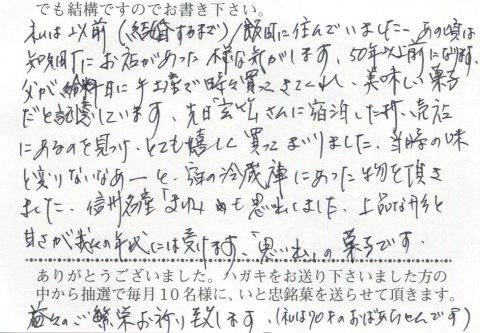 でも結構ですのでお書き下さい。
私は以前(結婚するまで)飯田に住んでいました。あの頃は
知久町にお店があった様な気がします。50年以上前になります。
父が給料日に手土産で時々買ってきてくれ、美味しい菓子
だと記憶しています。先日さんに宿泊した折、売店
にあるのを見つけ、とても嬉しく買ってまいりました。当時の味
と変りないなあーと、宿の冷蔵庫にあった物を頂き
ました。信州名産「」も思い出しました。上品な形と
甘さが我々の年代には受けます。「思い出」の菓子です。
ありがとうございました。ハガキをお送り下さいました方の
中から抽選で毎月10名様に、いと忠銘菓を送らせて頂きます。
益々のご繁栄お祈り致します。(私は70才のおばあちゃんです)